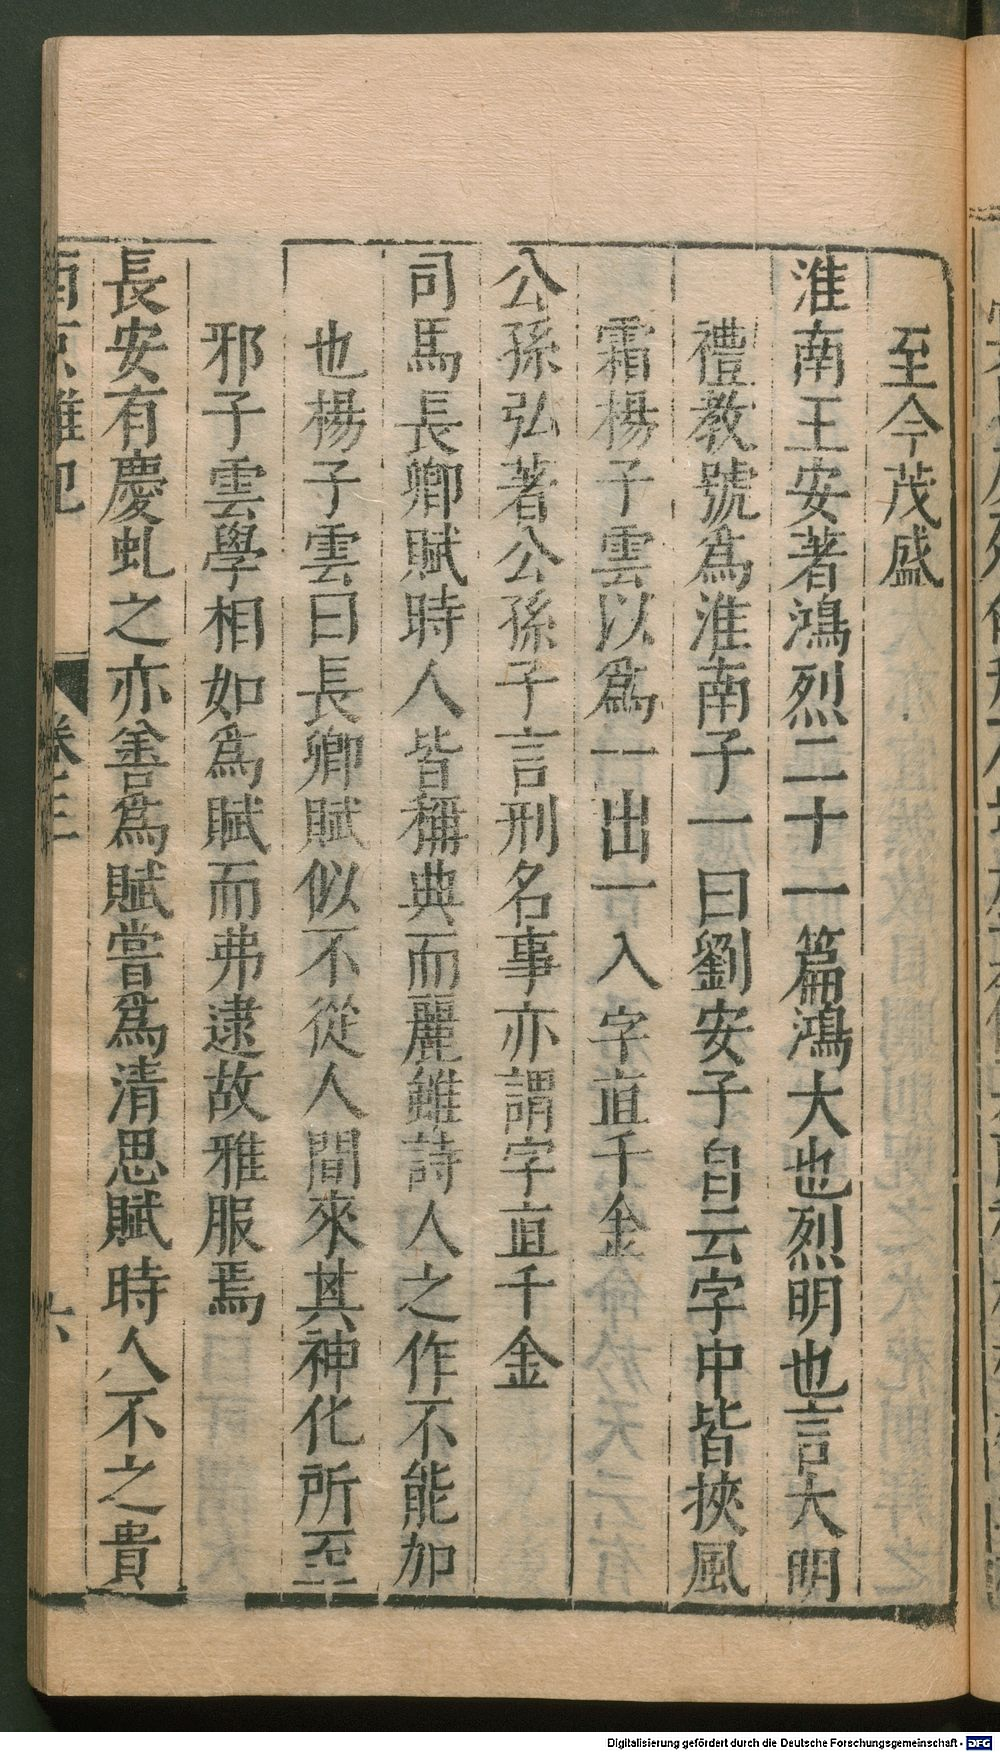 至今茂盛
淮南王安著鴻烈二十一篇鴻大也烈明也言大明
禮教號爲淮南子一曰劉安子自云字中皆挾風
霜楊子雲以爲一出一入字直千金
公孫弘著公孫子言刑名事亦謂字直千金
司馬長卿賦時人皆稱典而麗雖詩人之作不能加
也楊子雲曰長卿賦似不從人間來其神化所至
邪子雲學相如爲賦而弗逮故雅服焉
長安有慶虬之亦善爲賦嘗爲清思賦時人不之貴
西京雜記 卷三 六
Digitalisierung gefördert durch die Deutsche Forschungsgemeinschaft - DFG